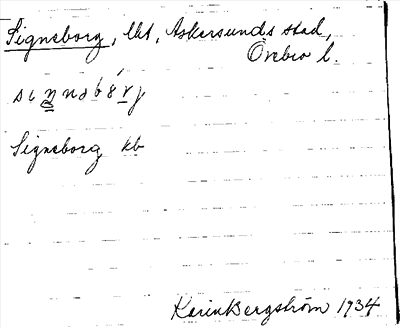 Signeborg, lht, Askersunds stad,
Örebro l.
Signeborg kb
Karin Bergström 1934